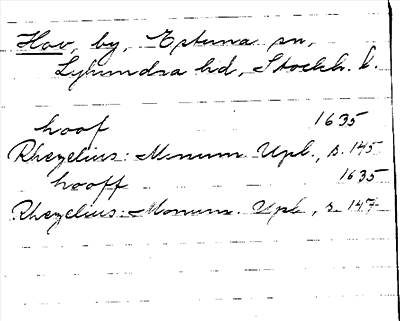 Hov, by, Estuna sn,
Lyhundra hd, Stockh. l.
hoof 1635
Rhezelius: Monum. Upl., s. 145
hooff 1635
Rhezelius: Monum. Upl., s. 147